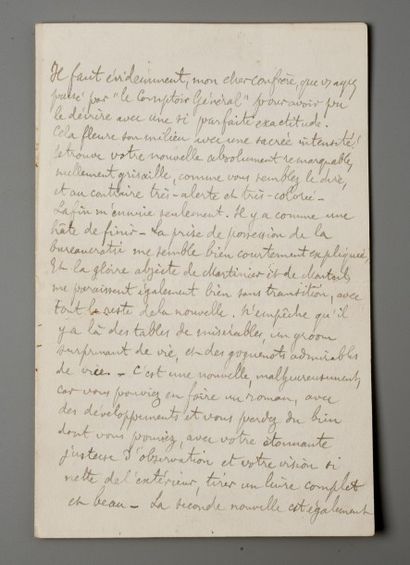 Il faut évidemment, mon cher confrère, que vous ayez
passé par "le Comptoir Général" pour avoir pu
le décrire avec une si parfaite exactitude.
Cela fleure son milieu avec une sacrée intensité !
Je trouve votre nouvelle absolument remarquable,
nullement grisaille, comme vous semblez le dire,
et au contraire très-alerte et très-colorée -
La fin m'ennuie seulement. Il y a comme une
hâte de finir - La prise de possession de la
bureaucratie me semble bien courtement expliquée,
Et la gloire abjecte de Martinier et de
me paraissent également bien sans transition, avec
tout le reste de la nouvelle. N'empêche qu'il
y a là des tables de misérables, un groom
surprenant de vie, et des goguenots admirables
de vrai. - C'est une nouvelle, malheureusement,
car vous pouviez en faire un roman, avec
des développements et vous perdez du bien
dont vous pouviez, avec votre étonnante
justesse d'observation et votre vision si
nette de l'extérieur, tirer un livre complet
et beau - La seconde nouvelle est également